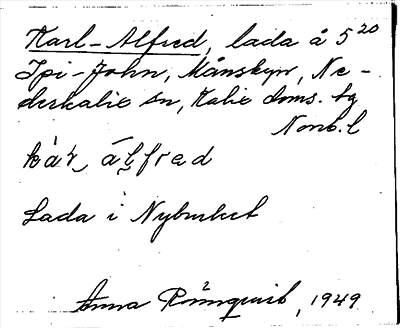 Karl-Alfred, lada å 5²⁰
Ipi-John, Månskyn, Ne-
derkalix sn, Kalix doms. bg
Norb. l
kàr, álfred
Lada i Nybruket
Anna Rönnqvist, 1949